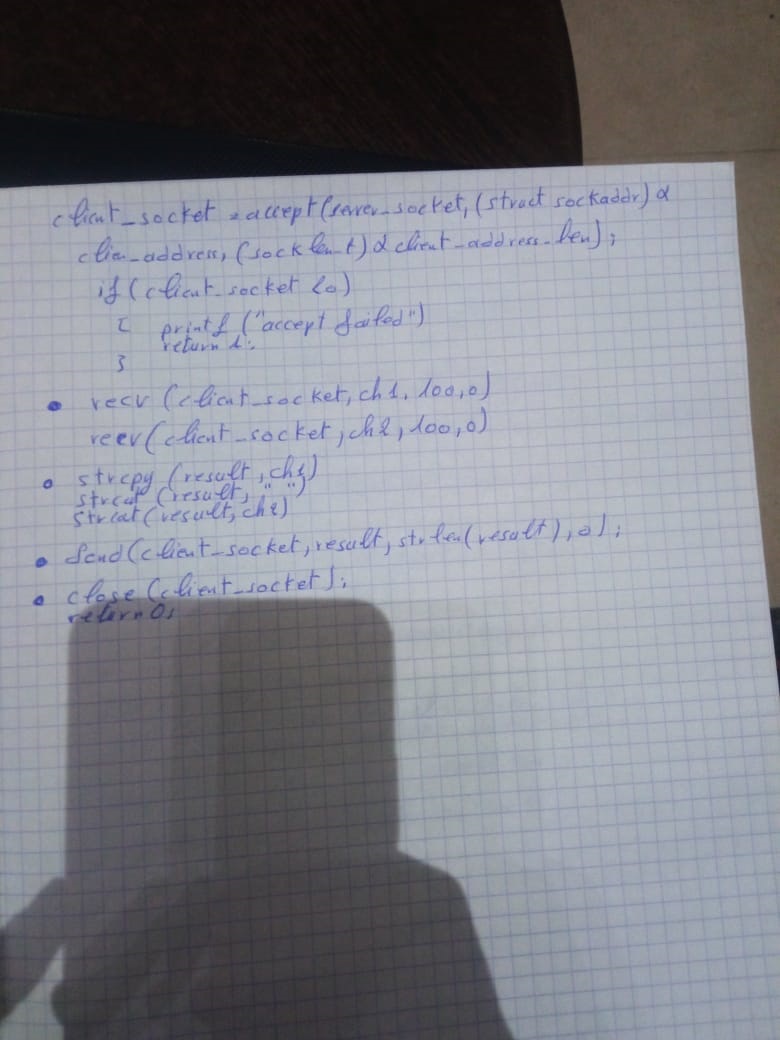 client_socket = accept(server_socket, (struct sockaddr) &
clien_address, (socklen_t) & client_address_len);
if (client_socket <0)
{ printf ("accept failed")
return 1;
}
• recv (client_socket, ch1, 100,0)
recv(client_socket, ch2, 100,0)
• strcpy (result, ch1)
strcat (result, " ")
strcat(result, ch2)
• Send(client_socket, result, strlen(result), 0);
• close (client_socket);
return 0;